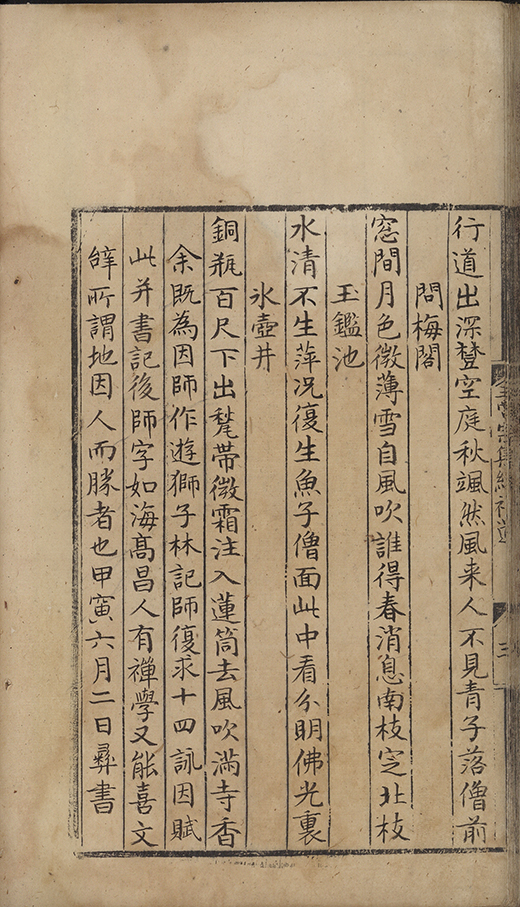 行道出深空庭秋颯然風来人不見青子落僧前
問梅閣
窓間月色微薄雪自風吹誰得春消息南枝㝎北枝
玉鑑池
水清不生萍况復生魚子僧面此中看分明佛光裏
氷壺井
銅瓶百尺下出甃帯微霜注入蓮筒去風吹滿寺香
余既為因師作遊獅子林記師復求十四詠因賦
此并書記後師字如海髙昌人有禪學又能喜文
辭所謂地因人而勝者也甲寅六月二日彝書
王常宗集續補遺
三